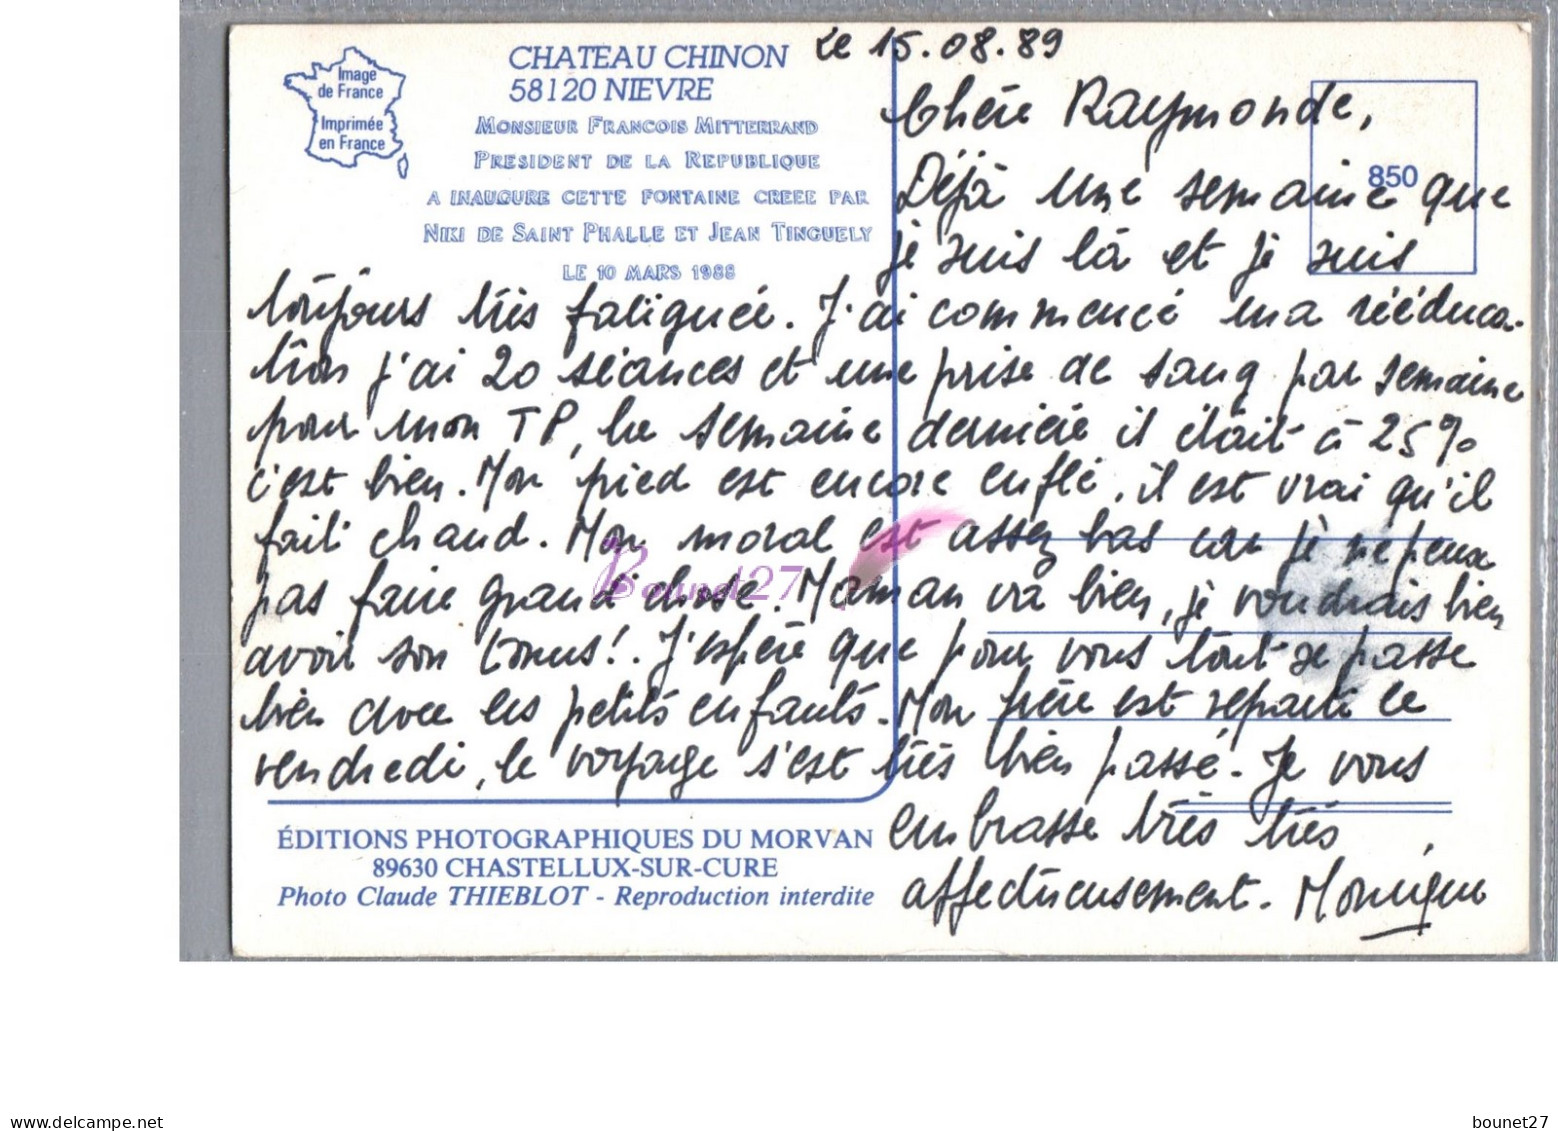 Image
de France
Imprimée
en France
CHATEAU CHINON
58120 NIEVRE
MONSIEUR FRANCOIS MITTERRAND
PRESIDENT DE LA REPUBLIQUE
A INAUGURE CETTE FONTAINE CREEE PAR
NIKI DE SAINT PHALLE ET JEAN TINGUELY
LE 10 MARS 1988
850
Le 15.08.89
Chère Raymonde,
Déjà une semaine que
je suis là et je suis
toujours très fatiguée. J'ai commencé ma rééduca-
tion j'ai 20 séances et une prise de sang par semaine
pour mon TP, la semaine dernière il était à 25%
c'est bien. Mon pied est encore enflé, il est vrai qu'il
fait chaud. Mon moral est assez bas car je ne peux
pas faire grand chose. Maman va bien, je voudrais bien
avoir son tonus!. J'espère que pour vous tout se passe
bien avec les petits enfants. Mon frère est reparti le
vendredi, le voyage s'est très bien passé. Je vous
embrasse très très
affectueusement. Monique
ÉDITIONS PHOTOGRAPHIQUES DU MORVAN
89630 CHASTELLUX-SUR-CURE
Photo Claude THIEBLOT - Reproduction interdite
Bounet27
www.delcampe.net
bounet27